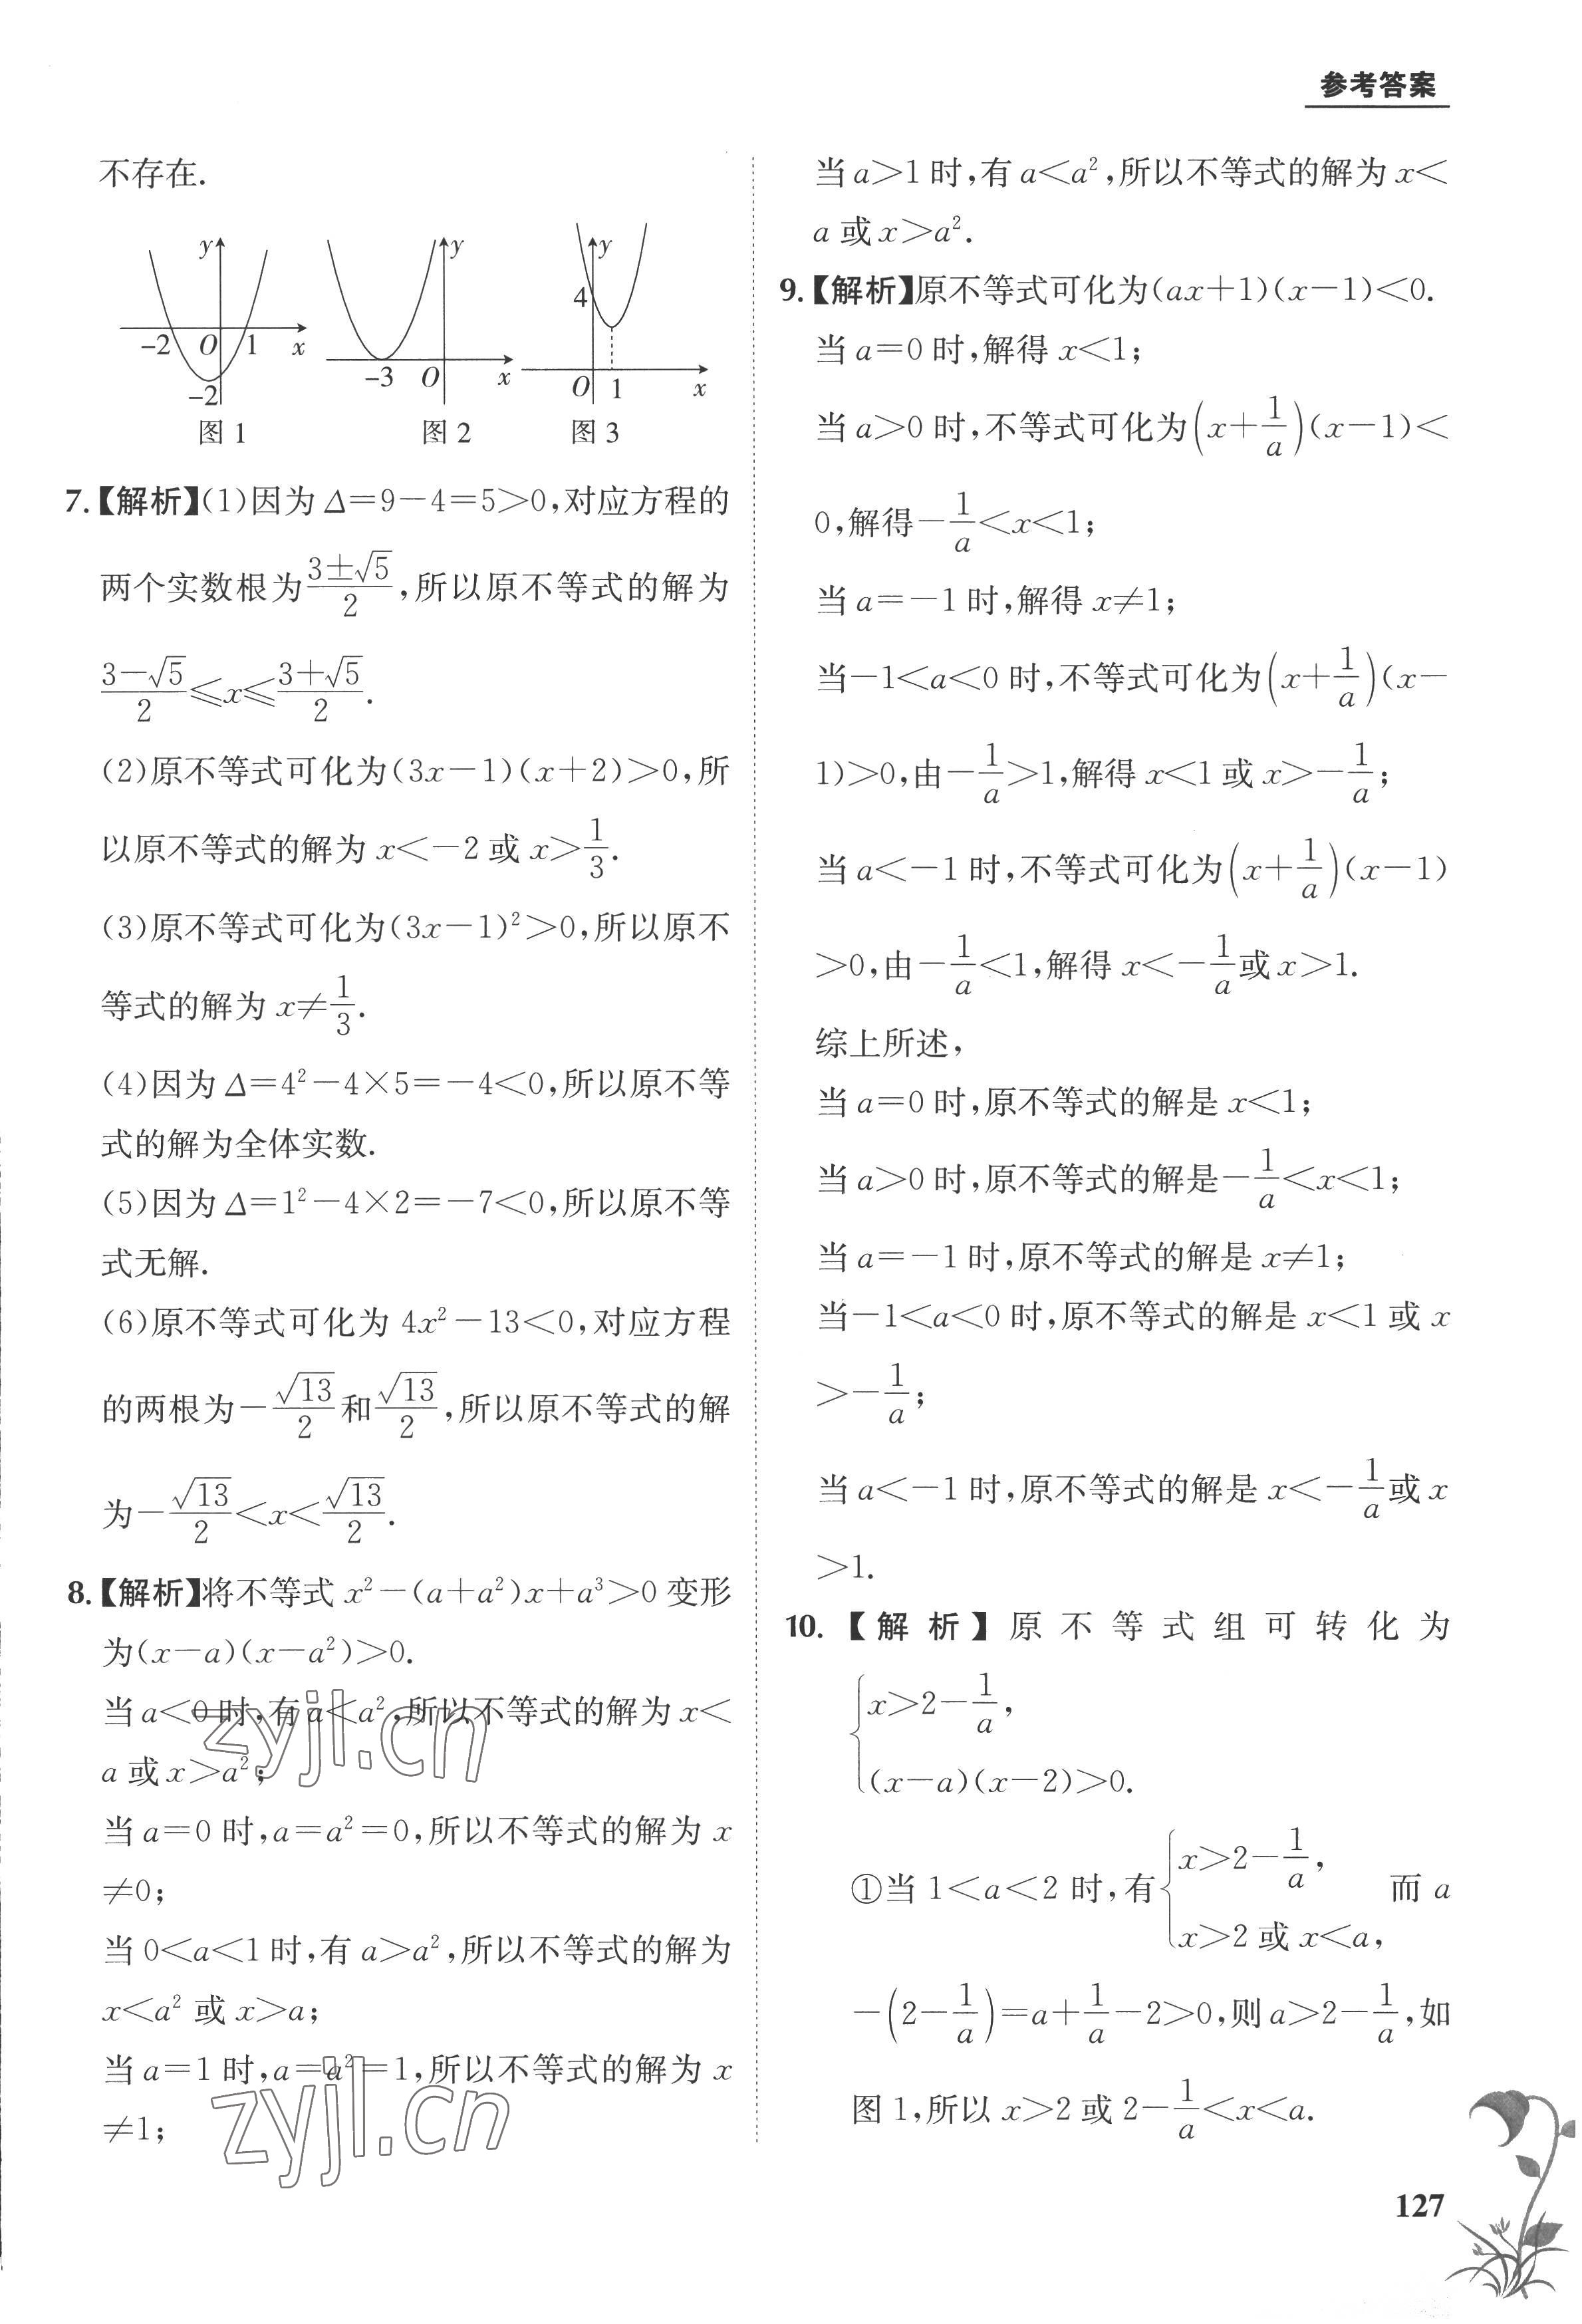 参考答案
不存在.
y
-2 O 1 x
-2
图 1
y
-3 O x
图 2
y
4
O 1 x
图 3
7.【解析】(1)因为 Δ=9-4=5>0,对应方程的
两个实数根为\frac{3±√5}{2},所以原不等式的解为
\frac{3-√5}{2}≤x≤\frac{3+√5}{2}.
(2)原不等式可化为(3x-1)(x+2)>0,所
以原不等式的解为 x<-2 或 x>\frac{1}{3}.
(3)原不等式可化为(3x-1)²>0,所以原不
等式的解为 x≠\frac{1}{3}.
(4)因为 Δ=4²-4×5=-4<0,所以原不等
式的解为全体实数.
(5)因为 Δ=1²-4×2=-7<0,所以原不等
式无解.
(6)原不等式可化为 4x²-13<0,对应方程
的两根为-\frac{√13}{2}和\frac{√13}{2},所以原不等式的解
为-\frac{√13}{2}<x<\frac{√13}{2}.
8.【解析】将不等式 x²-(a+a²)x+a³>0 变形
为(x-a)(x-a²)>0.
当 a<0 时,有 a<a²,所以不等式的解为 x<
a 或 x>a²;
zyjl.cn
当 a=0 时,a=a²=0,所以不等式的解为 x
≠0;
当 0<a<1 时,有 a>a²,所以不等式的解为
x<a² 或 x>a;
当 a=1 时,a=a²=1,所以不等式的解为 x
≠1;
zyjl.cn
当 a>1 时,有 a<a²,所以不等式的解为 x<
a 或 x>a².
9.【解析】原不等式可化为(ax+1)(x-1)<0.
当 a=0 时,解得 x<1;
当 a>0 时,不等式可化为(x+\frac{1}{a})(x-1)<
0,解得-\frac{1}{a}<x<1;
当 a=-1 时,解得 x≠1;
当-1<a<0 时,不等式可化为(x+\frac{1}{a})(x-
1)>0,由-\frac{1}{a}>1,解得 x<1 或 x>-\frac{1}{a};
当 a<-1 时,不等式可化为(x+\frac{1}{a})(x-1)
>0,由-\frac{1}{a}<1,解得 x<-\frac{1}{a}或 x>1.
综上所述,
当 a=0 时,原不等式的解是 x<1;
当 a>0 时,原不等式的解是-\frac{1}{a}<x<1;
当 a=-1 时,原不等式的解是 x≠1;
当-1<a<0 时,原不等式的解是 x<1 或 x
>-\frac{1}{a};
当 a<-1 时,原不等式的解是 x<-\frac{1}{a}或 x
>1.
10.【解析】原不等式组可转化为
{x>2-\frac{1}{a},
(x-a)(x-2)>0.
①当 1<a<2 时,有{x>2-\frac{1}{a}, x>2 或 x<a, 而 a
-(2-\frac{1}{a})=a+\frac{1}{a}-2>0,则 a>2-\frac{1}{a},如
图 1,所以 x>2 或 2-\frac{1}{a}<x<a.
127